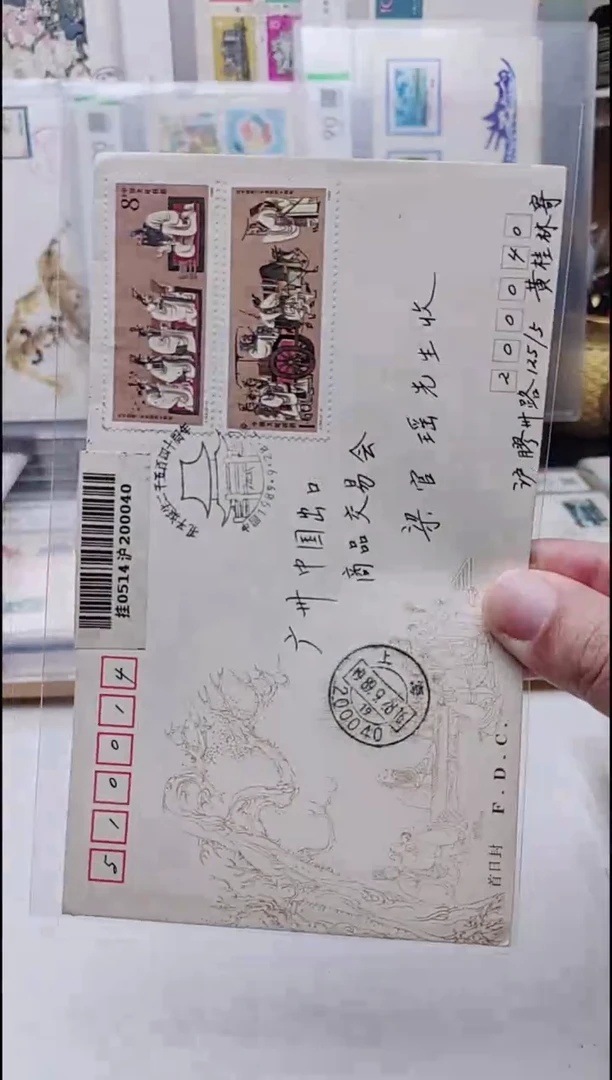 510014
挂0514 沪200040
8
中国人民邮政
1.60
孔子诞生二千五百四十周年
1989.9.28
广州中国出口
商品交易会
梁官瑶先生收
上海
200040
200040
沪胶州路125/5 黄桂林寄
首日封 F.D.C.